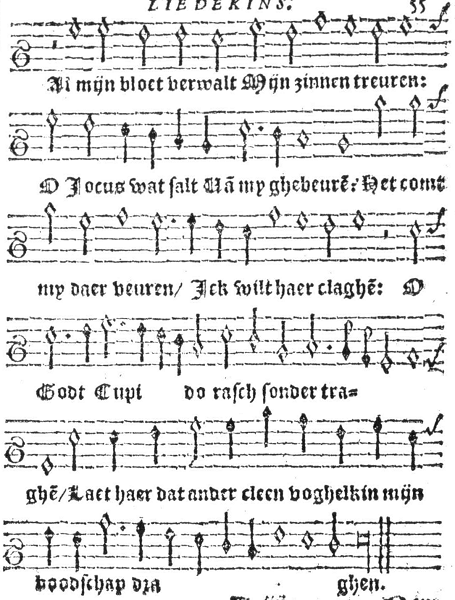 LIEDEKINS. 55
Al mijn bloet verwalt Mijn zinnen treuren:
O Jocus wat salt Uā my ghebeurē: Het comt
my daer veuren/ Ick wilt haer claghē: O
Godt Cupi do rasch sonder tra=
ghē/ Laet haer dat ander cleen voghelkin mijn
boodschap dra ghen.